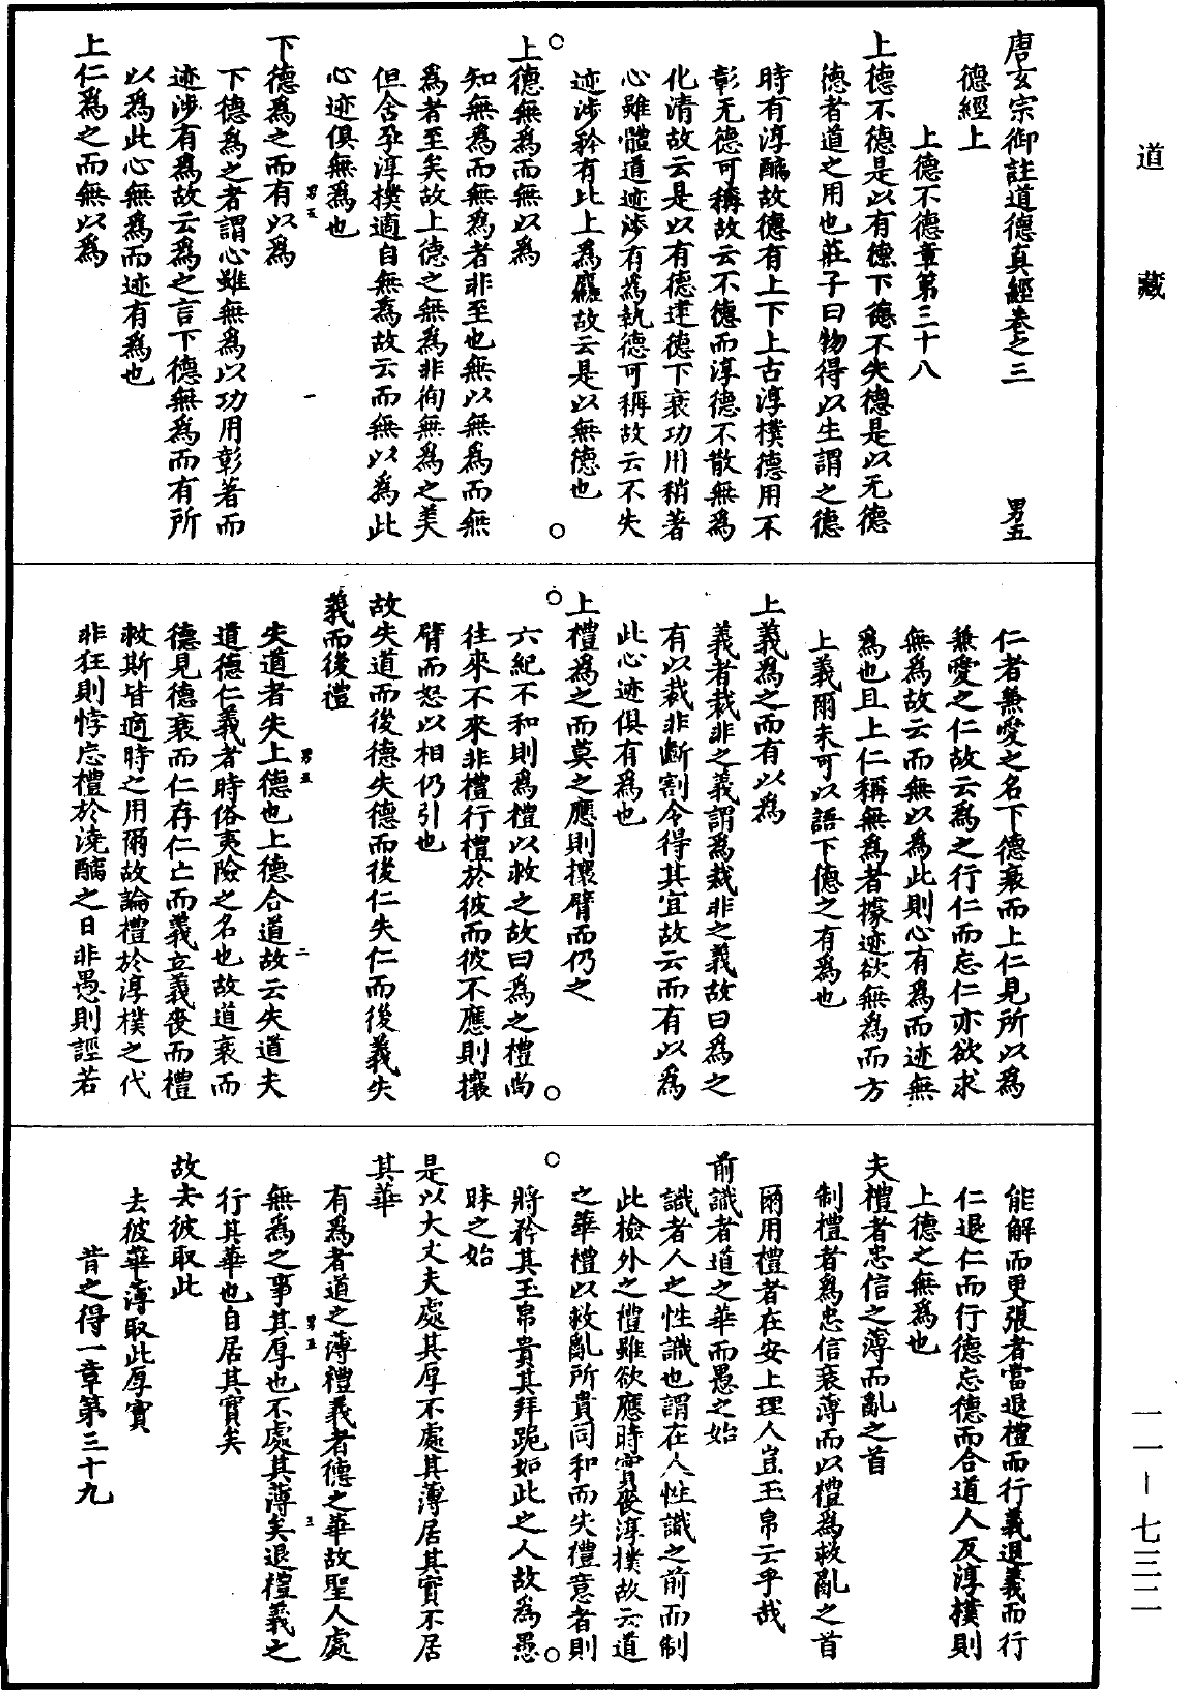 道藏
一一-七三二
唐玄宗御註道德真經卷之三 男五
德經上
上德不德章第三十八
上德不德是以有德下德不失德是以无德
德者道之用也莊子曰物得以生謂之德
時有淳醨故德有上下上古淳樸德用不
彰无德可稱故云不德而淳德不散無爲
化清故云是以有德逮德下衰功用稍著
心雖體道迹涉有爲執德可稱故云不失
迹涉矜有比上爲麤故云是以無德也
上德無爲而無以爲
知無爲而無爲者非至也無以無爲而無
爲者至矣故上德之無爲非徇無爲之美
但含孕淳樸適自無爲故云而無以爲此
心迹俱無爲也
下德爲之而有以爲
男五 一
下德爲之者謂心雖無爲以功用彰著而
迹涉有爲故云爲之言下德無爲而有所
以爲此心無爲而迹有爲也
上仁爲之而無以爲
仁者兼愛之名下德衰而上仁見所以爲
兼愛之仁故云爲之行仁而忘仁亦欲求
無爲故云而無以爲此則心有爲而迹無
爲也且上仁稱無爲者據迹欲無爲而方
上義爾未可以語下德之有爲也
上義爲之而有以爲
義者裁非之義謂爲裁非之義故曰爲之
有以裁非斷割令得其宜故云而有以爲
此心迹俱有爲也
上禮爲之而莫之應則攘臂而仍之
六紀不和則爲禮以救之故曰爲之禮尚
往來不來非禮行禮於彼而彼不應則攘
臂而怒以相仍引也
故失道而後德失德而後仁失仁而後義失
義而後禮
男五 二
失道者失上德也上德合道故云失道夫
道德仁義者時俗夷險之名也故道衰而
德見德衰而仁存仁亡而義立義喪而禮
救斯皆適時之用爾故論禮於淳樸之代
非狂則悖忘禮於澆醨之日非愚則誣若
能解而更張者當退禮而行義退義而行
仁退仁而行德忘德而合道人反淳樸則
上德之無爲也
夫禮者忠信之薄而亂之首
制禮者爲忠信衰薄而以禮爲救亂之首
爾用禮者在安上理人豈玉帛云乎哉
前識者道之華而愚之始
識者人之性識也謂在人性識之前而制
此檢外之禮雖欲應時實喪淳樸故云道
之華禮以救亂所貴同和而失禮意者則
將矜其玉帛貴其拜跪如此之人故爲愚
昧之始
是以大丈夫處其厚不處其薄居其實不居
其華
有爲者道之薄禮義者德之華故聖人處
無爲之事其厚也不處其薄矣退禮義之
男五 三
行其華也自居其實矣
故去彼取此
去彼華薄取此厚實
昔之得一章第三十九